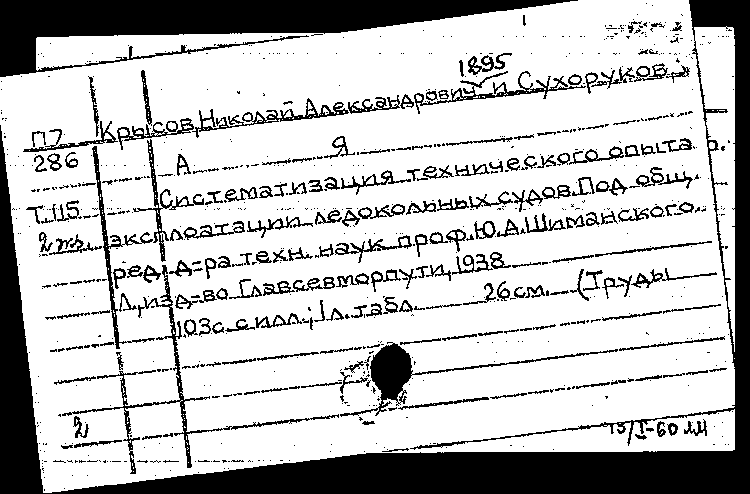 1895
П7 Крысов, Николай Александрович и Сухоруков,
286 А Я
Систематизация технического опыта
Т.115 эксплоатации ледокольных судов. Под общ.
2 экз. ред. д-ра техн. наук проф. Ю.А. Шиманского.
Л., изд-во Главсевморпути, 1938
103с. с илл.; 1 л. табл. 26см. (Труды
2